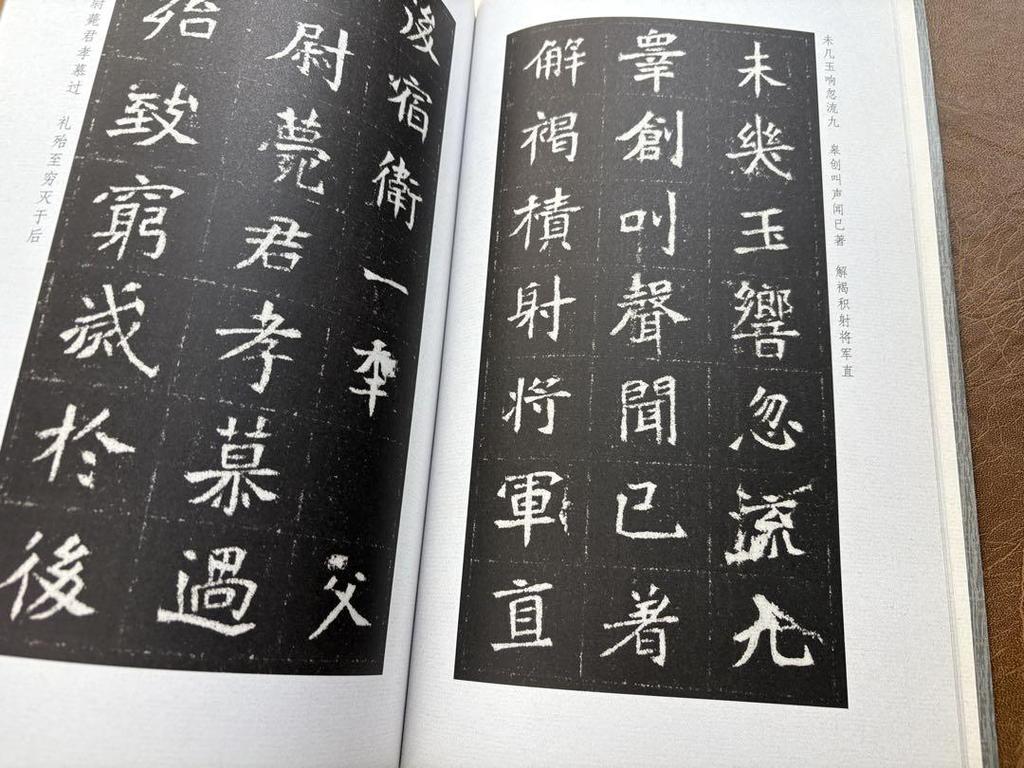 未几玉响忽流九 皋创叫声闻已著 解褐积射将军直
未幾玉響忽流九
睾創叫聲聞已著
解褐積射将軍直
後宿衛一 父
尉薨君孝慕過
殆致窮滅於後
尉薨君孝慕过 礼殆至穷灭于后